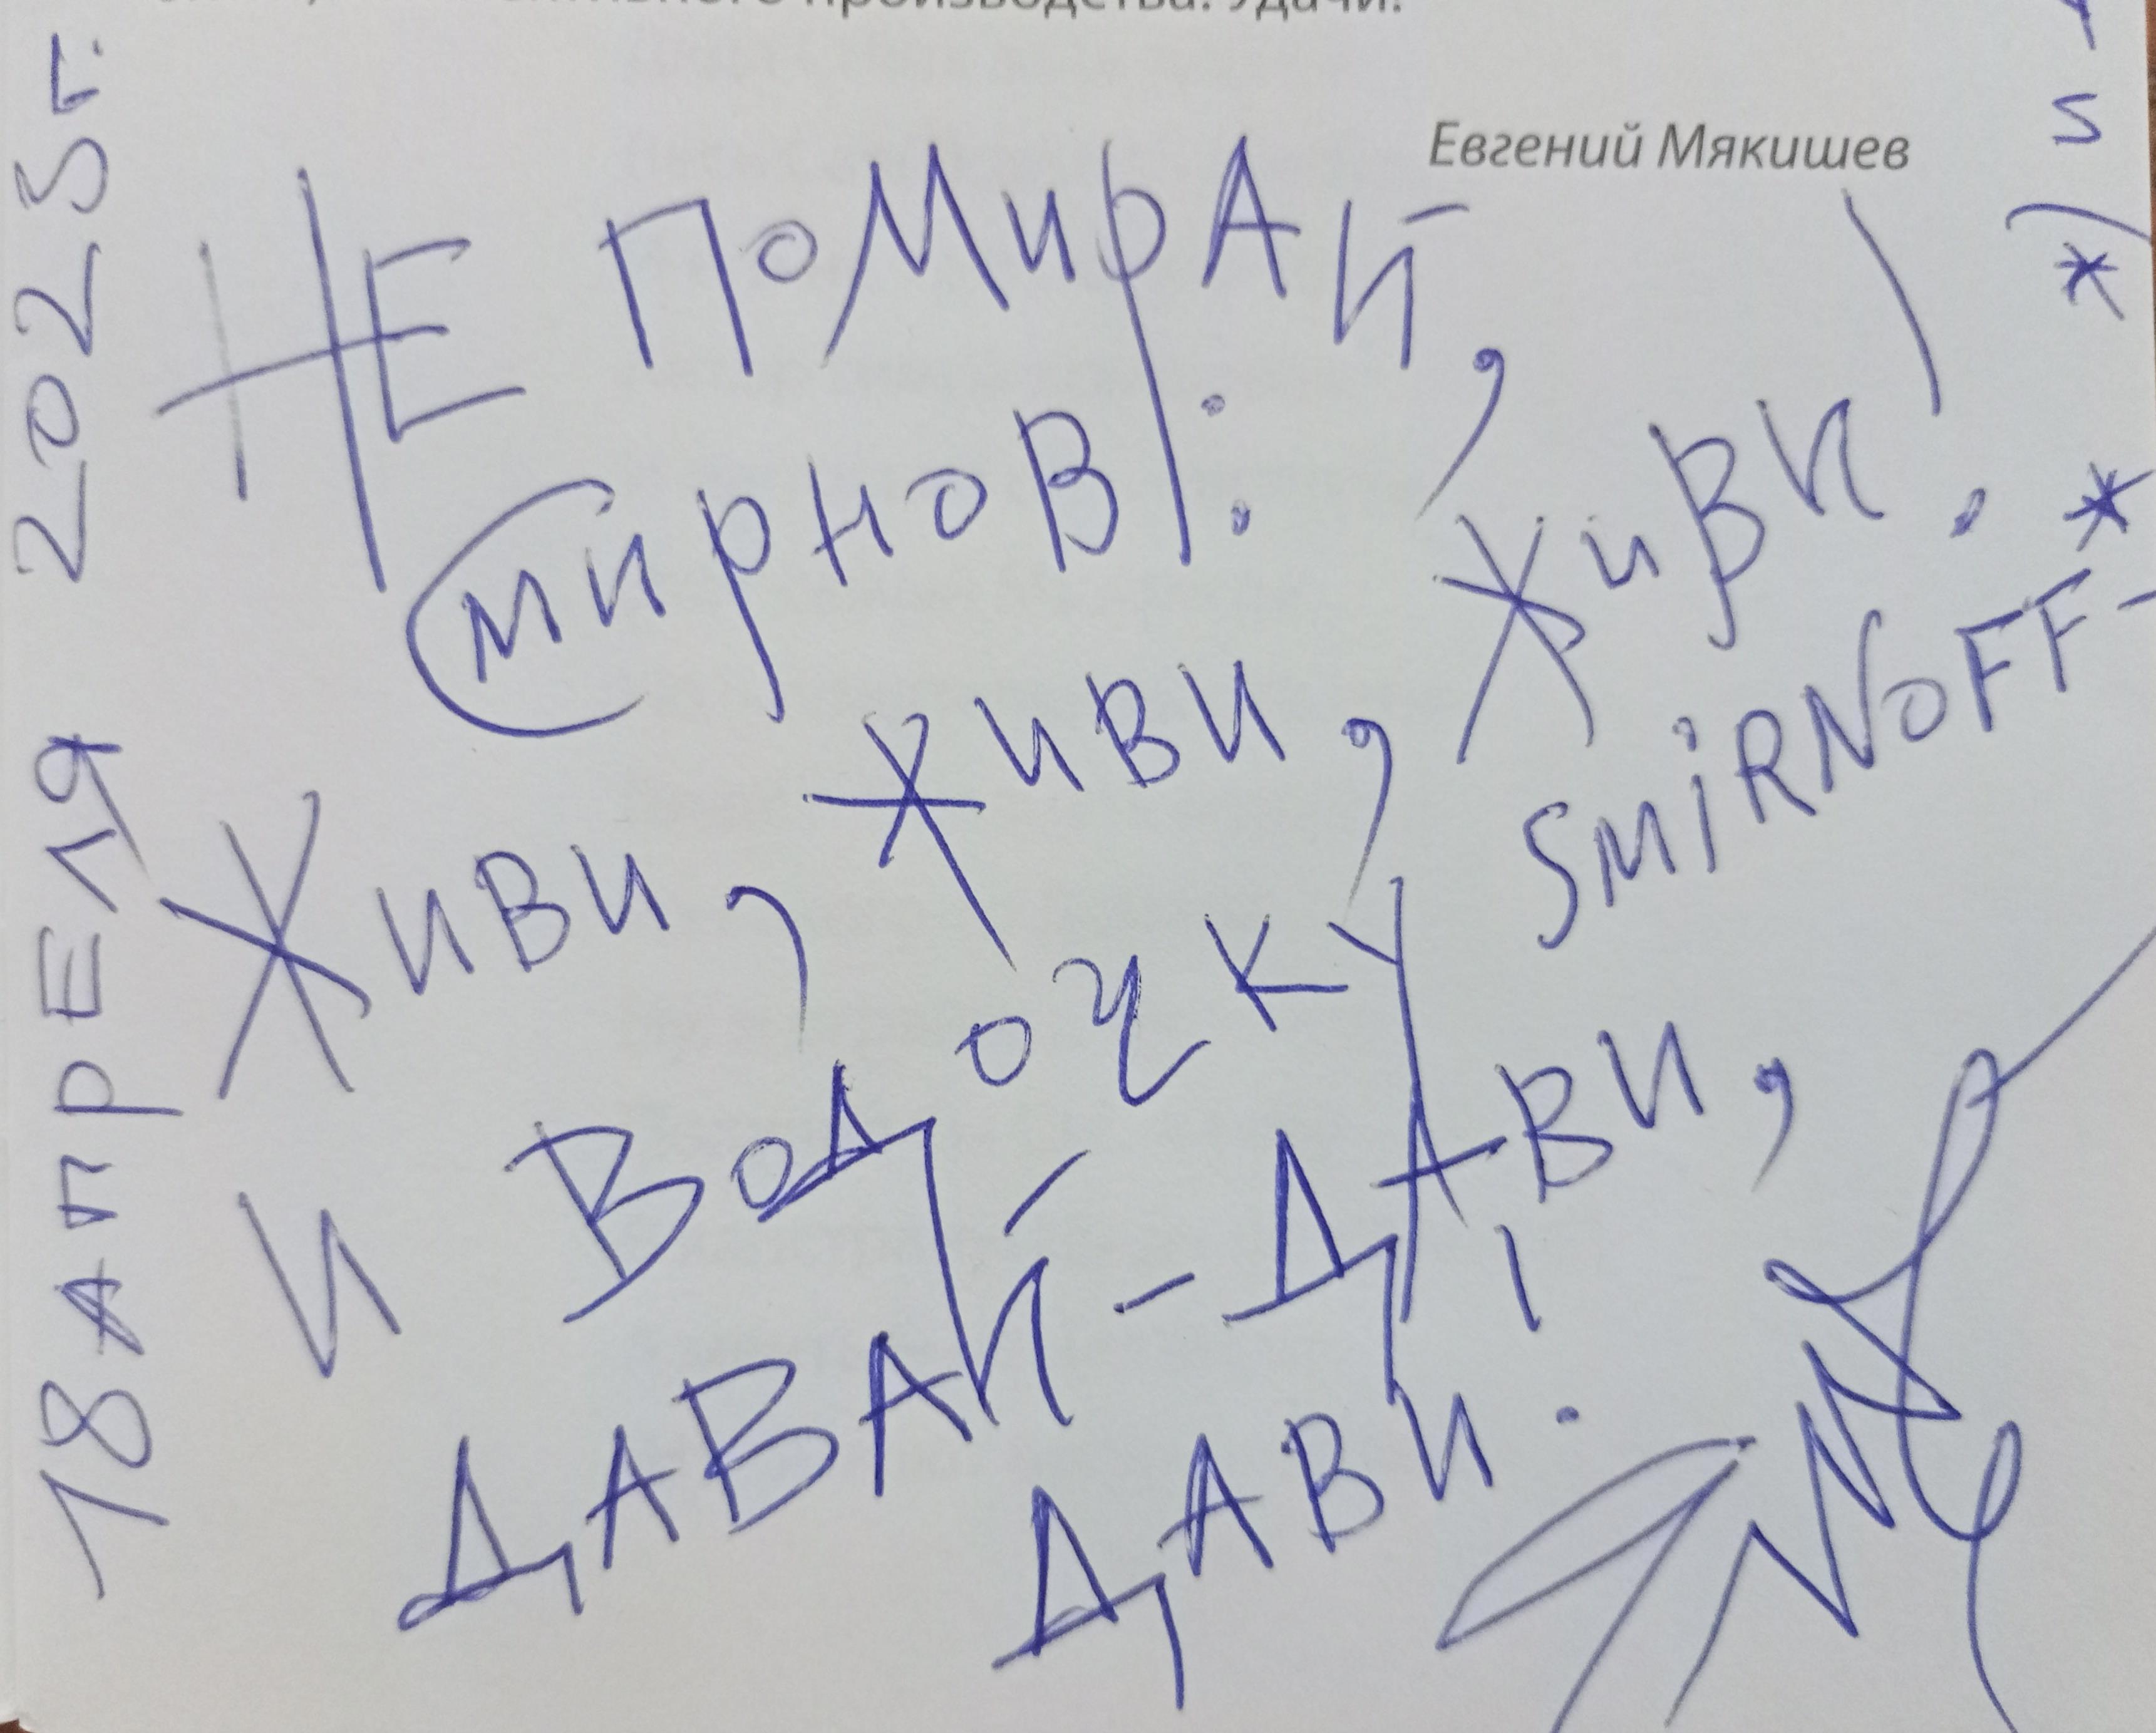 производства. Удачи!
Евгений Мякишев
НЕ ПОМИРАЙ,
СМИРНОВ!: ЖИВИ!
ЖИВИ, ЖИВИ, SMIRNOFF-
И ВОДОЧКУ ДАВИ,
ДАВАЙ-ДАВИ!
18 АПРЕЛЯ 2025 г.